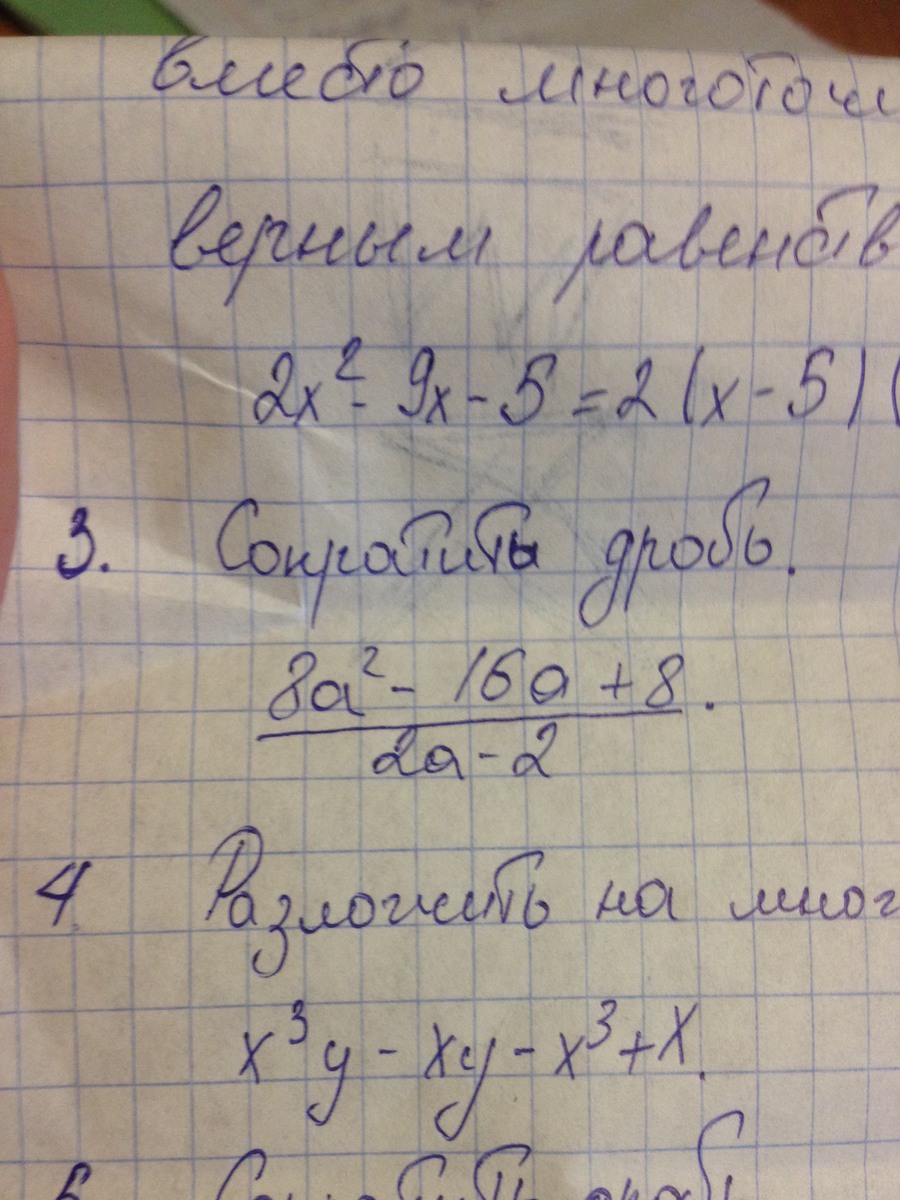 вместо многоточи
верным равенств
2x² - 9x - 5 = 2(x - 5)(
3. Сократить дробь.
8a² - 16a + 8
2a - 2
.
4 Разложить на множ
x³y - xy - x³ + x.